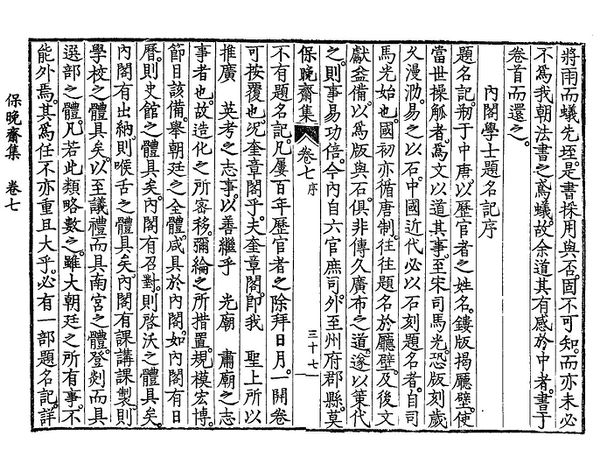 將雨而蟻先垤。是書採用與否。固不可知。而亦未必
不爲我朝法書之鳶蟻。故余道其有感於中者。書于
卷首而還之。
內閣學士題名記序
題名記。剏于中唐。以歷官者之姓名。鏤版揭廳壁。使
當世操觚者。爲文以道其事。至宋司馬光。恐版刻歲
久漫泐。易之以石。中國近代必以石刻題名者。自司
馬光始也。國初亦循唐制。往往題名於廳壁。及後文
獻益備。以爲版與石。俱非傳久廣布之道。遂以策代
之。則事易功倍。今內自六官庶司。外至州府郡縣。莫
保晚齋集 卷七 序 三十七
不有題名記。凡屢百年歷官者之除拜日月。一開卷
可按覆也。况奎章閣乎。夫奎章閣。卽我 聖上所以
推廣 英考之志事。以善繼乎 光廟 肅廟之志
事者也。故造化之所密移。彌綸之所措置。規模宏博。
節目該備。舉朝廷之全體。咸具於內閣。如內閣有日
曆。則史館之體具矣。內閣有召對。則啓沃之體具矣。
內閣有出納。則喉舌之體具矣。內閣有課講課製。則
學校之體具矣。以至議禮而具南宮之體。登剡而具
選部之體。凡若此類。略數之。雖大朝廷之所有事。不
能外焉。其爲任不亦重且大乎。必有一部題名記。詳
保晚齋集 卷七